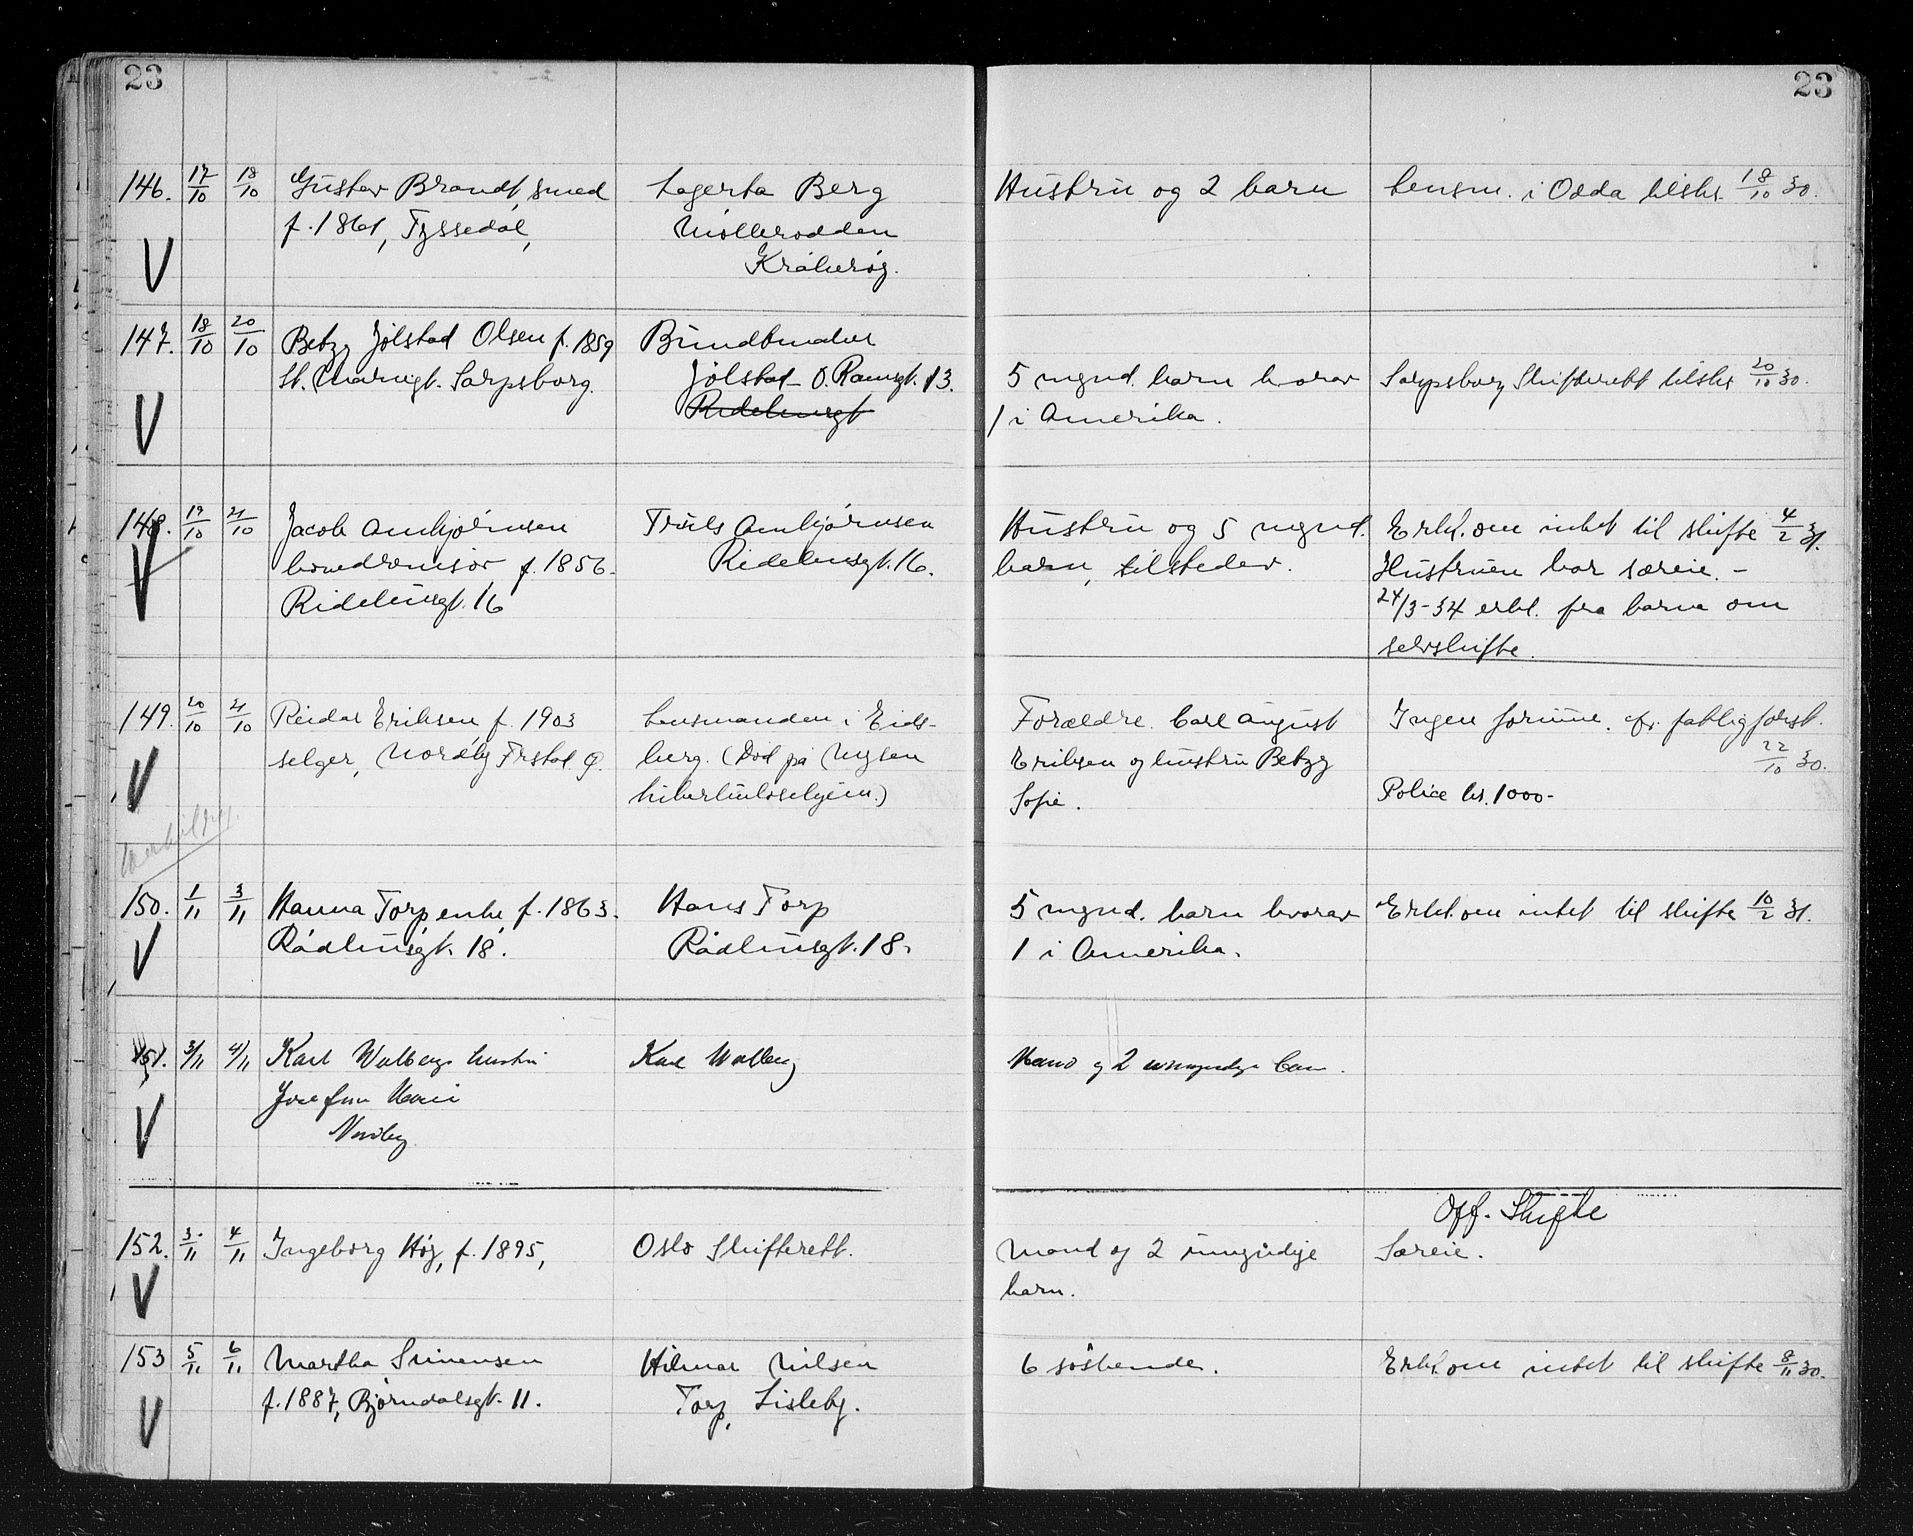 23
23
146. 17/10 18/10 Gustav Brandt, smed Lagerta Berg Hustru og 2 barn Lensm. i Odda tilskr. 18/10 30.
f. 1861, Tyssedal, Møllerodden
Kråkerøy.
147. 18/10 20/10 Betzy Jølstad Olsen f. 1859 Buntmaker
St. Mariegt. Sarpsborg. Jølstad O. Ramsgt. 13. 5 mynd. barn hvorav Sarpsborg Skifterett tilskr 20/10 30.
1 i Amerika.
148. 19/10 21/10 Jacob Ambjørnsen Truls Ambjørnsen Hustru og 5 mynd. Erkl. om intet til skifte 4/2 31.
f. 1856. Ridehusgt. 16. barn, tilsteder. Hustruen har særeie. -
Ridehusgt. 16 24/3-34 erkl. fra barna om
selvskifte.
149. 20/10 21/10 Reidar Eriksen f. 1903 Lensmanden i Eids- Forældre Carl August Ingen formue. cfr. fattigforst.
selger, Nordby Frstad. G. berg. (Død på Mysen Eriksen og hustru Betzy 22/10 30.
tuberkulosehjem.) Sofie. Police kr. 1000-
150. 1/11 3/11 Hanna Torp enke f. 1863. Hans Torp 5 mynd. barn hvorav Erkl. om intet til skifte 10/2 31.
Rådhusgt. 18. Rådhusgt. 18. 1 i Amerika.
151. 3/11 4/11 Karl Walbergs hustru Karl Walberg Mand og 2 umyndige barn.
Josefine Marie
Nordby
Off. Skifte
152. 3/11 4/11 Ingeborg Høy, f. 1895, Oslo Skifterett. Mand og 2 umyndige Særeie.
barn.
153 5/11 6/11 Martha Simensen Hilmar Nilsen 6 søskende. Erkl. om intet til skifte 8/11 30.
f. 1887, Bjørndalsgt. 11. Torp, Lisleby.